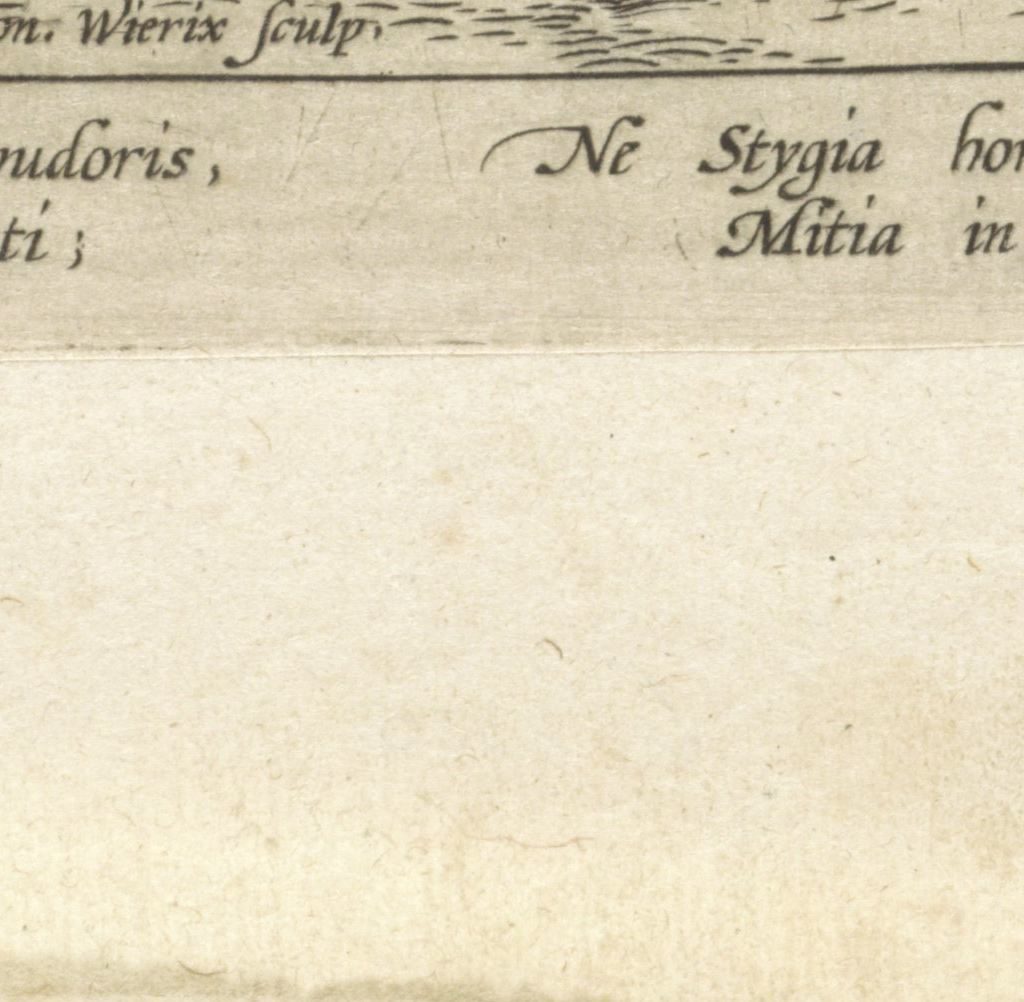 on. Wierix ſculp.
pudoris, Ne Stygia hor
ti; Mitia in